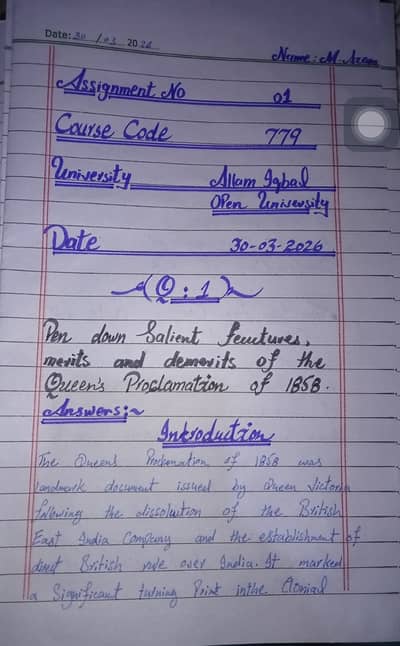 Date: 30 / 03 2026
Name: M. Azam
Assignment No 01
Course Code 779
University Allam Iqbal
Open University
Date 30-03-2026
Q: 1
Pen down Salient feutures,
merits and demerits of the
Queen's Proclamation of 1858.
Answers:~
Introduction
The Queen's Proklamation of 1858 was
landmark document issued by Queen Victoria
following the dissolution of the British
East India Company and the establishment of
direct British rule over India. It marked
a Significant turning Point inthe Clonial